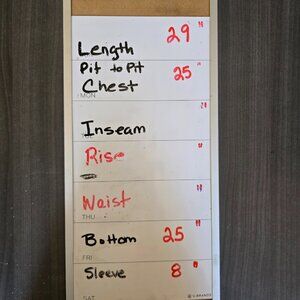 Length 29"
Pit to Pit
Chest 25"
MON
Inseam "
Rise "
Waist "
THU
Bottom 25"
FRI
Sleeve 8"
SAT
U BRANDS